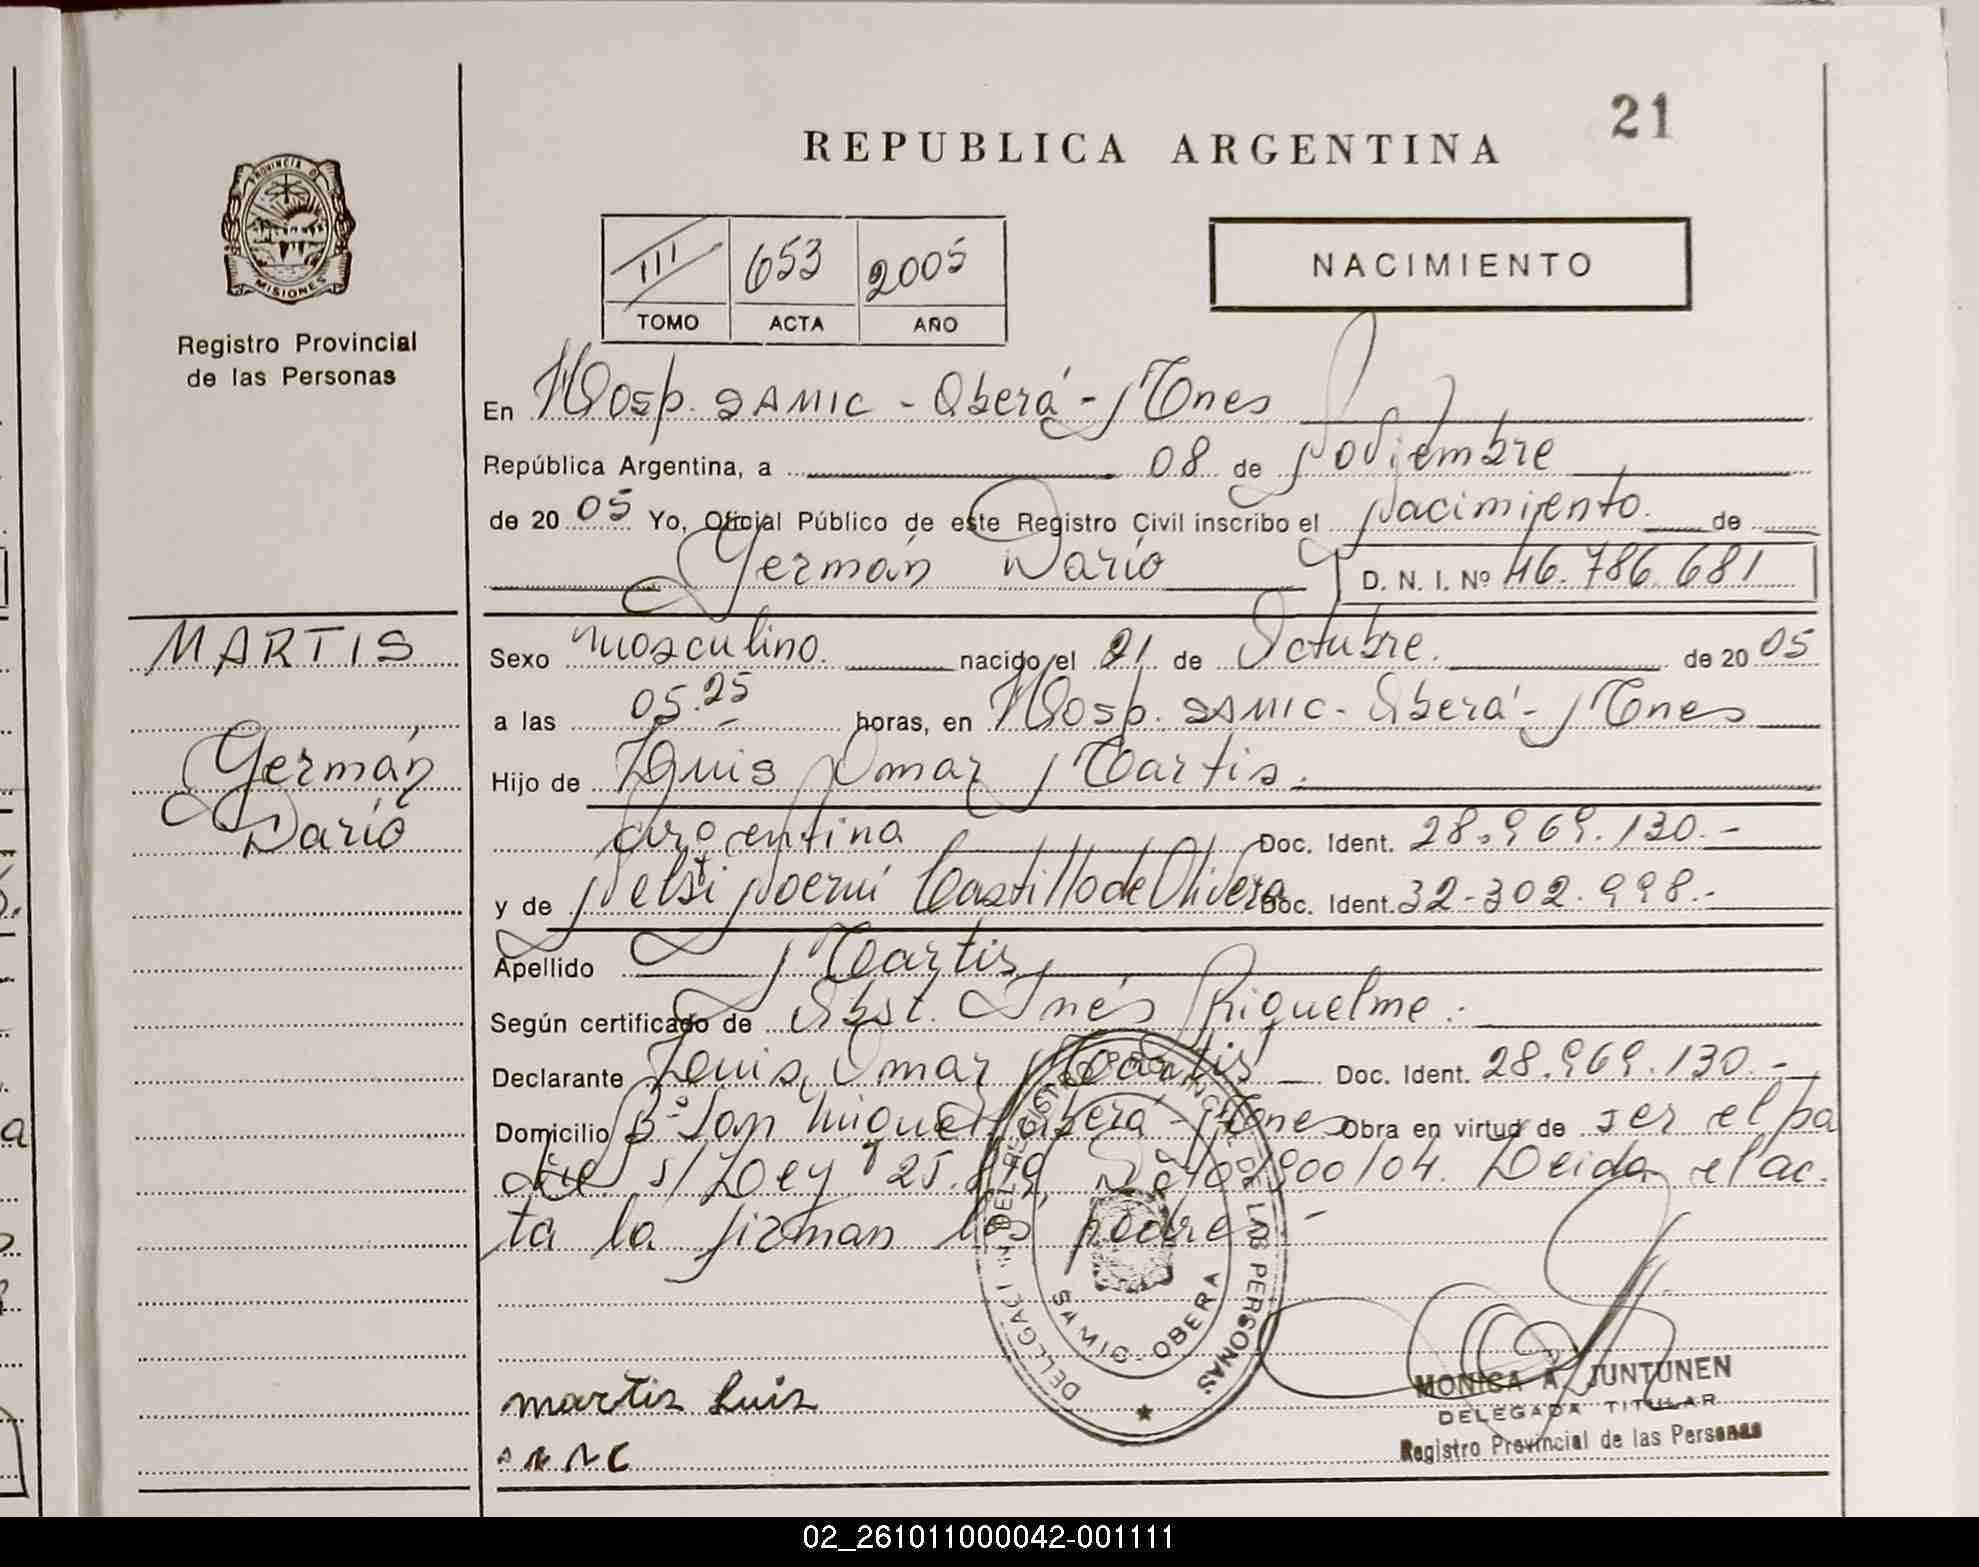 21
REPUBLICA ARGENTINA
PROVINCIA DE
MISIONES
Registro Provincial
de las Personas
III 653 2005
TOMO ACTA AÑO
NACIMIENTO
En Hosp. SAMIC - Oberá - Mnes
República Argentina, a 08 de Noviembre
de 20 05 Yo, Oficial Público de este Registro Civil inscribo el Nacimiento de
Germán Darío D. N. I. Nº 46.786.681
MARTIS
Germán
Darío
Sexo masculino. nacido el 21 de Octubre. de 20 05
a las 05.25 horas, en Hosp. SAMIC - Oberá - Mnes
Hijo de Luis Omar Martis.
argentina Doc. Ident. 28.969.130.-
y de Noemí Castillo de Olivera Doc. Ident. 32-302.998.-
Apellido Martis
Según certificado de Obst. Inés Riquelme.-
Declarante Luis Omar Martis Doc. Ident. 28.969.130.-
Domicilio Bº San Miguel Oberá - Mnes Obra en virtud de ser el pa
dre s/Ley 25.819, Dto 900/04. Leida el ac.
ta la firman los padres.-
DELEGACI REGISTRO PROVINCIAL DE LAS PERSONAS
SAMIC - OBERA
martis Luis
MONICA A. JUNTUNEN
DELEGADA TITULAR
Registro Provincial de las Personas
02_261011000042-001111